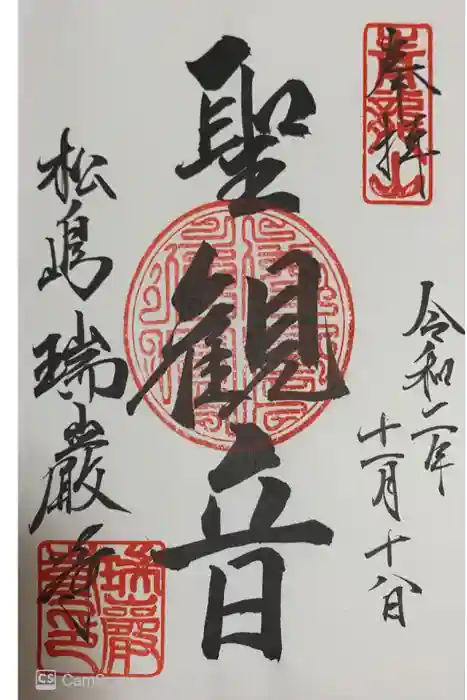 奉拝
青龍山
令和二年
十一月十八日
聖観音
松島瑞巌寺
瑞巌寺印
CS CamS